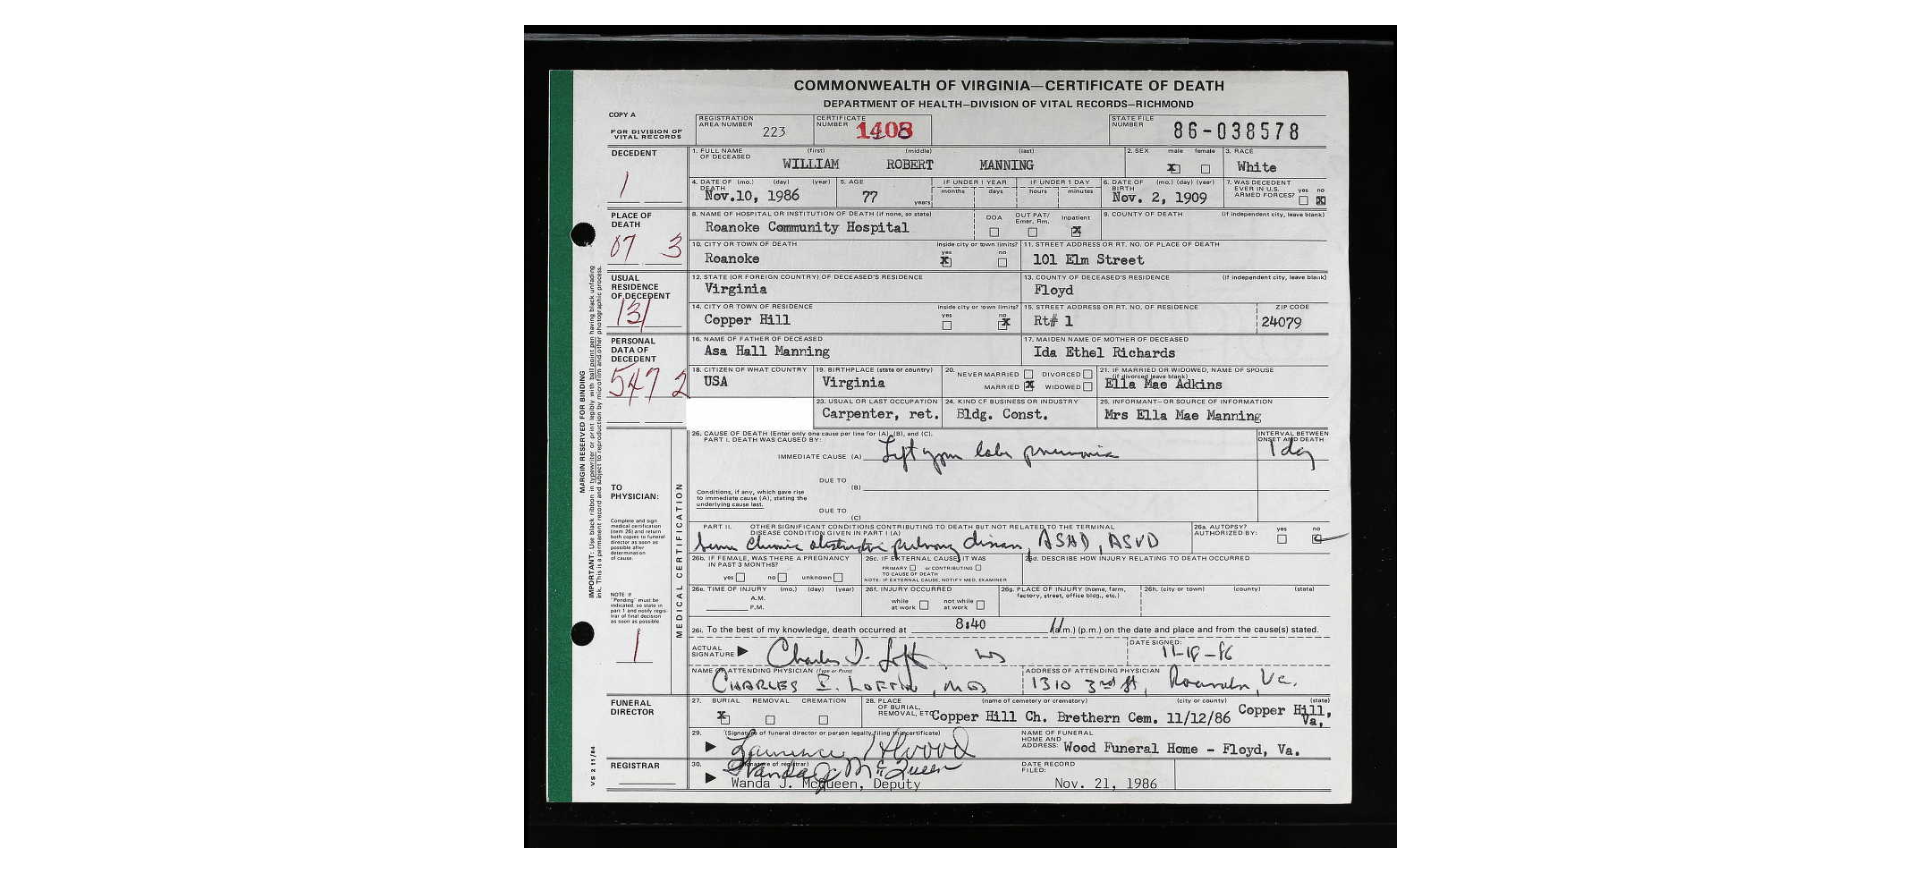 COMMONWEALTH OF VIRGINIA—CERTIFICATE OF DEATH
DEPARTMENT OF HEALTH—DIVISION OF VITAL RECORDS—RICHMOND
COPY A
FOR DIVISION OF VITAL RECORDS
REGISTRATION AREA NUMBER 223
CERTIFICATE NUMBER 1408
STATE FILE NUMBER 86-038578
DECEDENT
1
1. FULL NAME OF DECEASED (first) (middle) (last)
WILLIAM ROBERT MANNING
2. SEX male female
x
3. RACE
White
4. DATE OF DEATH (mo.) (day) (year)
Nov.10, 1986
5. AGE
77 years
IF UNDER 1 YEAR months days
IF UNDER 1 DAY hours minutes
6. DATE OF BIRTH (mo.) (day) (year)
Nov. 2, 1909
7. WAS DECEDENT EVER IN U.S. ARMED FORCES? yes no
x
PLACE OF DEATH
07 3
8. NAME OF HOSPITAL OR INSTITUTION OF DEATH (if none, so state)
Roanoke Community Hospital
DOA OUT PAT/ Emer. Rm. Inpatient
x
9. COUNTY OF DEATH (if independent city, leave blank)
10. CITY OR TOWN OF DEATH
Roanoke
inside city or town limits? yes no
x
11. STREET ADDRESS OR RT. NO. OF PLACE OF DEATH
101 Elm Street
USUAL RESIDENCE OF DECEDENT
131
12. STATE (OR FOREIGN COUNTRY) OF DECEASED'S RESIDENCE
Virginia
13. COUNTY OF DECEASED'S RESIDENCE (if independent city, leave blank)
Floyd
14. CITY OR TOWN OF RESIDENCE
Copper Hill
inside city or town limits? yes no
x
15. STREET ADDRESS OR RT. NO. OF RESIDENCE
Rt# 1
ZIP CODE
24079
PERSONAL DATA OF DECEDENT
547 2
16. NAME OF FATHER OF DECEASED
Asa Hall Manning
17. MAIDEN NAME OF MOTHER OF DECEASED
Ida Ethel Richards
18. CITIZEN OF WHAT COUNTRY
USA
19. BIRTHPLACE (state or country)
Virginia
20. NEVER MARRIED DIVORCED
MARRIED x WIDOWED
21. IF MARRIED OR WIDOWED, NAME OF SPOUSE (if divorced leave blank)
Ella Mae Adkins
23. USUAL OR LAST OCCUPATION
Carpenter, ret.
24. KIND OF BUSINESS OR INDUSTRY
Bldg. Const.
25. INFORMANT—OR SOURCE OF INFORMATION
Mrs Ella Mae Manning
MARGIN RESERVED FOR BINDING
IMPORTANT: Use black ribbon in typewriter or print legibly with ball point pen having black unfading
ink. This is a permanent record and subject to reproduction by microfilm and other photographic process.
MEDICAL CERTIFICATION
TO PHYSICIAN:
Complete and sign medical certification (item 26) and return both copies to funeral director as soon as possible after determination of cause.
NOTE: If "Pending" must be indicated, so state in part 1 and notify registrar of final decision as soon as possible
1
26. CAUSE OF DEATH (Enter only one cause per line for (A), (B), and (C).
PART I. DEATH WAS CAUSED BY:
INTERVAL BETWEEN ONSET AND DEATH
IMMEDIATE CAUSE (A) Left lobe pneumonia
1 day
DUE TO (B)
Conditions, if any, which gave rise to immediate cause (A), stating the underlying cause last.
DUE TO (C)
PART II. OTHER SIGNIFICANT CONDITIONS CONTRIBUTING TO DEATH BUT NOT RELATED TO THE TERMINAL DISEASE CONDITION GIVEN IN PART I (A)
chronic obstructive pulmonary disease, ASHD, ASVD
26a. AUTOPSY? AUTHORIZED BY: yes no
26b. IF FEMALE, WAS THERE A PREGNANCY IN PAST 3 MONTHS?
yes no unknown
26c. IF EXTERNAL CAUSE, IT WAS
PRIMARY or CONTRIBUTING
TO CAUSE OF DEATH
NOTE: IF EXTERNAL CAUSE, NOTIFY MED. EXAMINER
26d. DESCRIBE HOW INJURY RELATING TO DEATH OCCURRED
26e. TIME OF INJURY (mo.) (day) (year)
A.M.
P.M.
26f. INJURY OCCURRED
while at work not while at work
26g. PLACE OF INJURY (home, farm, factory, street, office bldg., etc.)
26h. (city or town) (county) (state)
26i. To the best of my knowledge, death occurred at 8:40 (a.m.) (p.m.) on the date and place and from the cause(s) stated.
ACTUAL SIGNATURE
DATE SIGNED:
NAME OF ATTENDING PHYSICIAN (Type or Print)
CHARLES MD
ADDRESS OF ATTENDING PHYSICIAN
1310 3rd St, Roanoke, Va.
FUNERAL DIRECTOR
27. BURIAL REMOVAL CREMATION
x
28. PLACE OF BURIAL, REMOVAL, ETC. (name of cemetery or crematory) (city or county) (state)
Copper Hill Ch. Brethern Cem. 11/12/86 Copper Hill, Va.
29. (Signature of funeral director or person legally filing this certificate)
NAME OF FUNERAL HOME AND ADDRESS: Wood Funeral Home - Floyd, Va.
REGISTRAR
30. (Signature of registrar)
Wanda J. McQueen
Wanda J. McQueen, Deputy
DATE RECORD FILED:
Nov. 21, 1986
VS 2 11/84